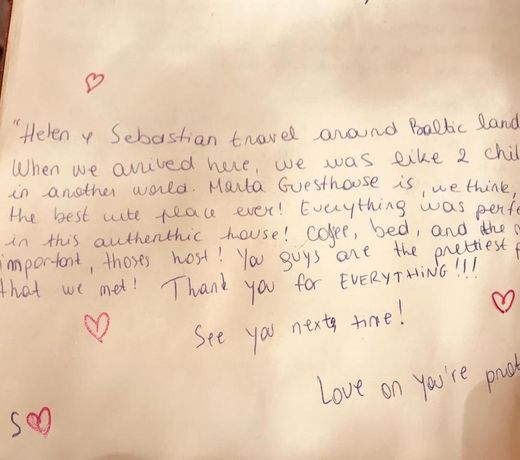 "Helen & Sebastian travel around Baltic land
When we arrived here, we was like 2 chil
in another world. Marta Guesthouse is, we think,
the best cute place ever! Everything was perfe
in this authenthic house! Coffee, bed, and the
important, thoses host! You guys are the prettiest
that we met! Thank you for EVERYTHING!!!
See you next time!
Love on you're
S